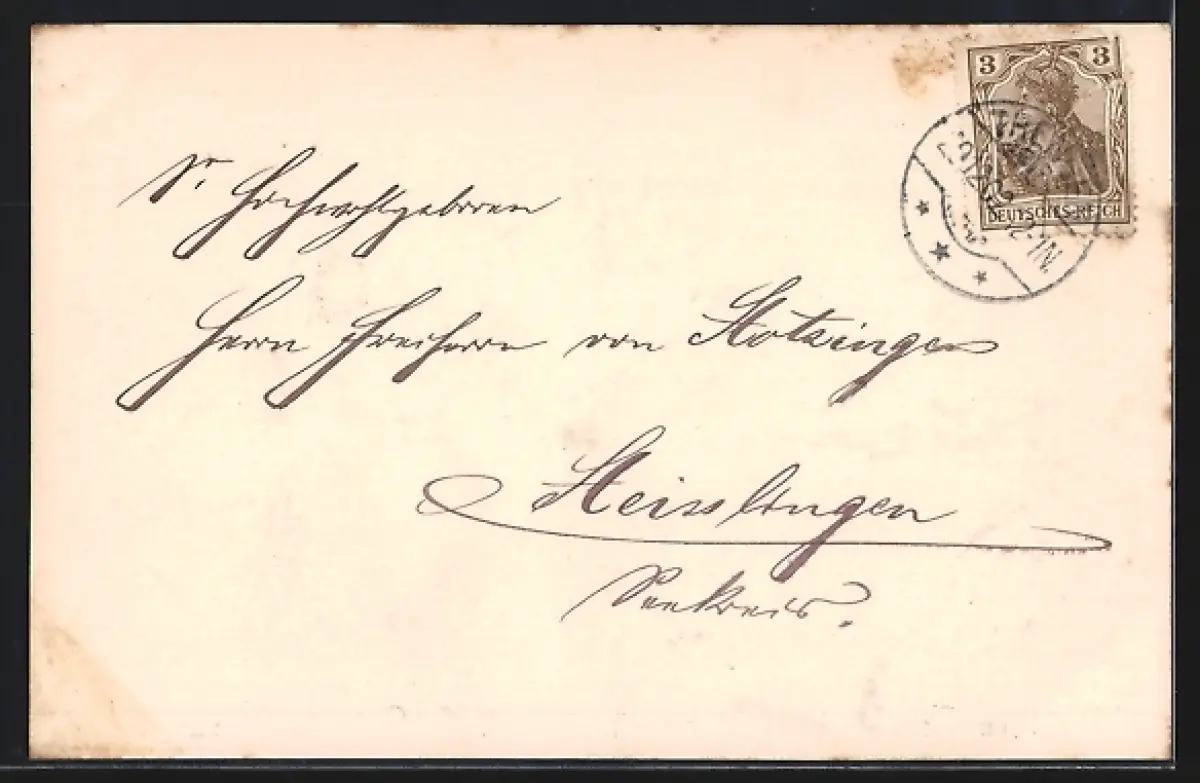 3 3
DEUTSCHES REICH
Sr. Hochwohlgeboren
Herrn Freiherrn von Stotzingen
Steisslingen
Seekreis.